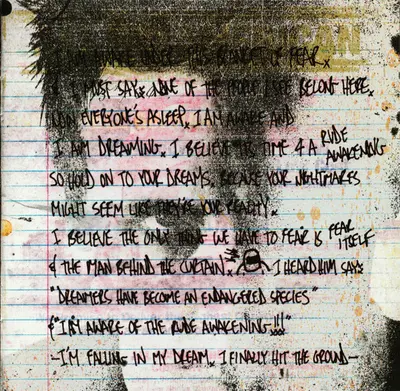 I AM AWAKE UNDER THIS BLANKET OF FEAR.
I MUST SAY: NONE OF THE PEOPLE HERE BELONG HERE.
NOW EVERYONE'S ASLEEP. I AM AWARE AND
I AM DREAMING. I BELIEVE IT'S TIME 4 A RUDE AWAKENING
SO HOLD ON TO YOUR DREAMS. BECAUSE YOUR NIGHTMARES
MIGHT SEEM LIKE THEY'RE YOUR REALITY.
I BELIEVE THE ONLY THING WE HAVE TO FEAR IS FEAR ITSELF
& THE MAN BEHIND THE CURTAIN. I HEARD HIM SAY:
"DREAMERS HAVE BECOME AN ENDANGERED SPECIES"
& "I AM AWARE OF THE RUDE AWAKENING!!!"
-I'M FALLING IN MY DREAM. I FINALLY HIT THE GROUND-